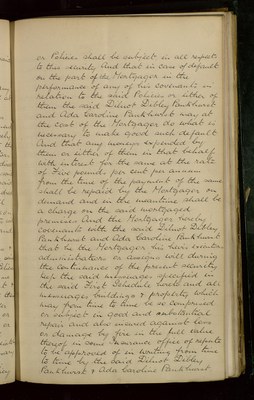 or Policies shall be subject in all respects
to this security And that in case of default
on the part of the Mortgagor in the
performance of any of his covenants in
relation to the said Policies or either of
them the said Dibley Pankhurst
and Ada Caroline Pankhurst may at
the cost of the Mortgagor do what is
necessary to make good such default
And that any moneys expended by
them or either of them in that behalf
with interest for the same at the rate
of Five pounds per cent per annum
from the time of the payment of the same
shall be repaid by the Mortgagor on
demand and in the meantime shall be
a charge on the said mortgaged
premises And the Mortgagor hereby
covenants with the said Dibley
Pankhurst and Ada Caroline Pankhurst
that he the Mortgagor his heirs executors
administrators or assigns will during
the continuance of the present security
keep the said messuages specified in
the said First Schedule hereto and all
messuages buildings & property which
may from time to time be comprised
or subject in good and substantial
repair and also insured against loss
or damage by fire in the full value
thereof in some Insurance office of repute
to be approved of in writing from time
to time by the said Dibley
Pankhurst & Ada Caroline Pankhurst